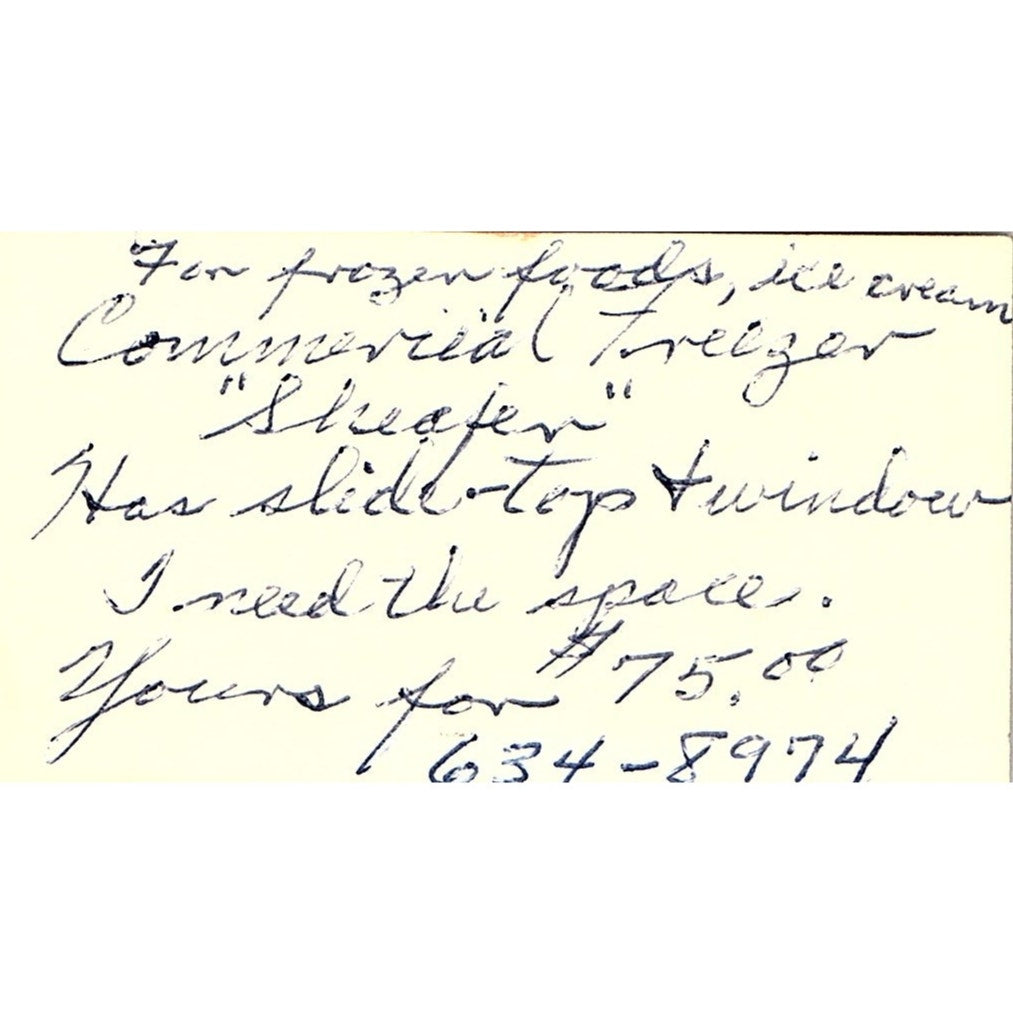 For frozen foods, ice cream
Commericial Freezer
"Sheafer"
Has slide-top & window
I need the space.
Yours for $75.00
634-8974